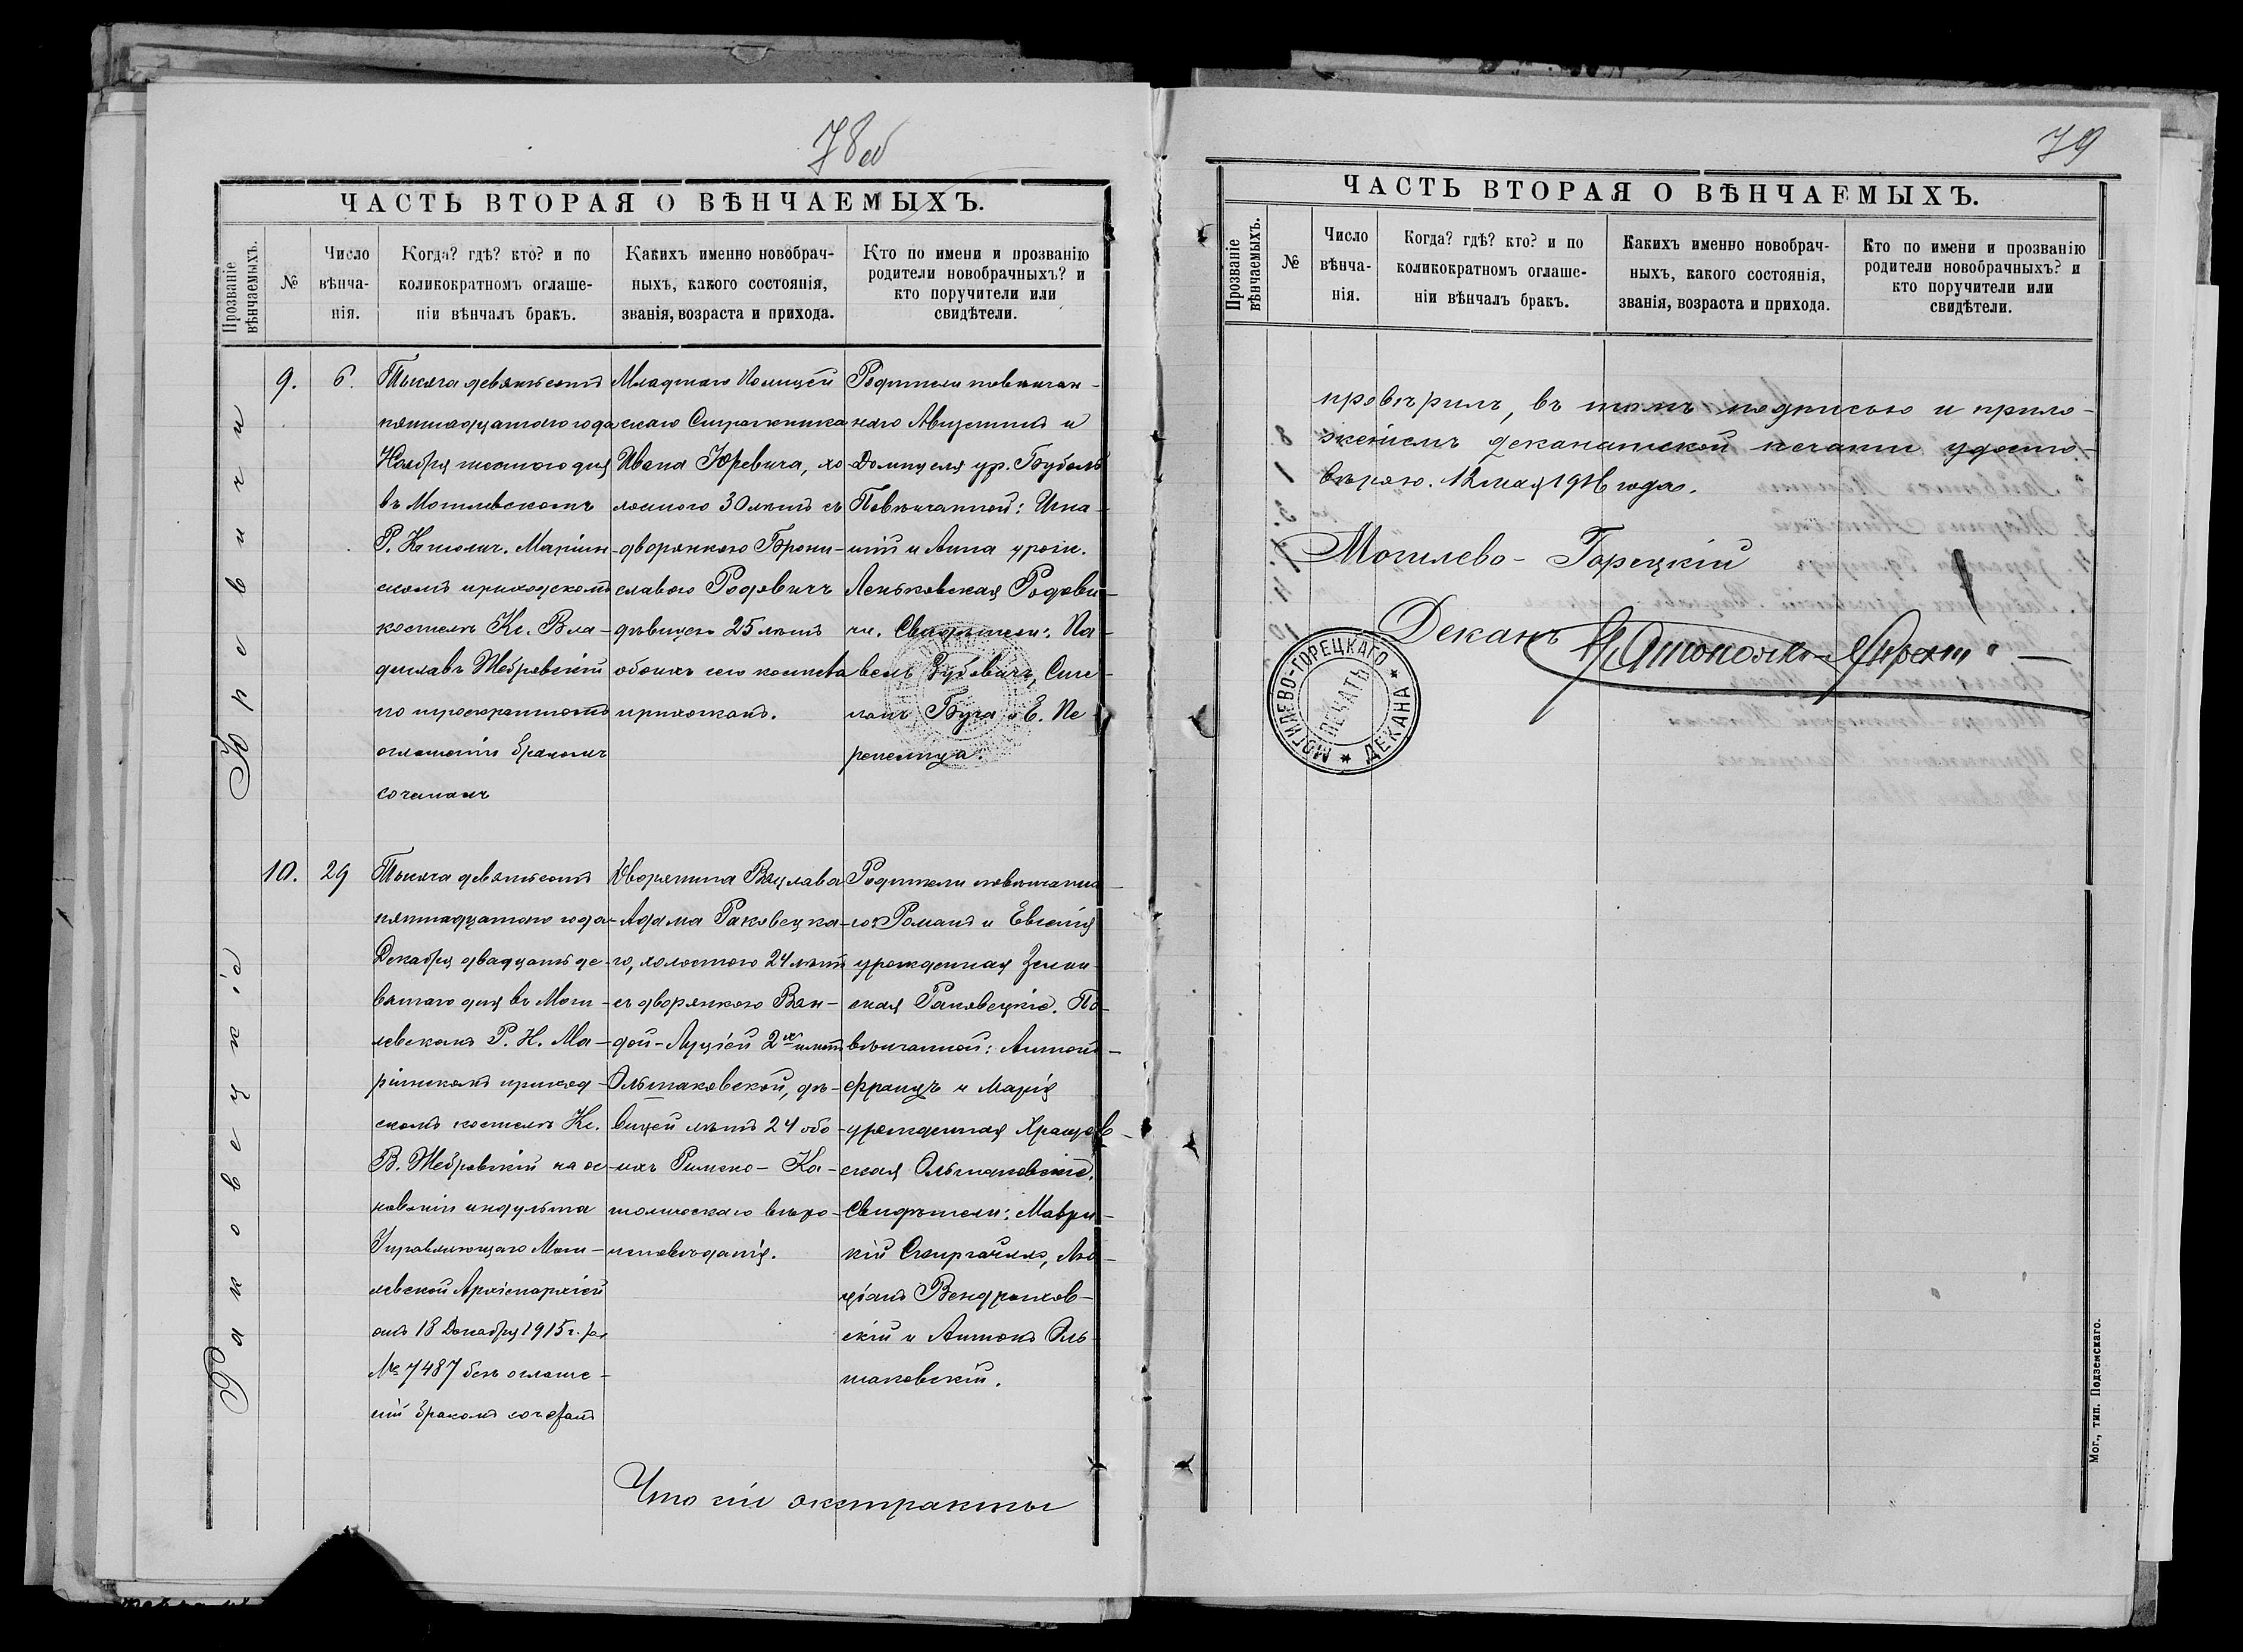 78об
ЧАСТЬ ВТОРАЯ О ВѢНЧАЕМЫХЪ.
Прозваніе вѣнчаемыхъ.
№
Число вѣнча-
нія.
Когда? гдѣ? кто? и по
коликократномъ оглаше-
ніи вѣнчалъ бракъ.
Какихъ именно новобрач-
ныхъ, какого состоянія,
званія, возраста и прихода.
Кто по имени и прозванію
родители новобрачныхъ? и
кто поручители или
свидѣтели.
Юревичи
9.
6.
Тысяча девятьсотъ
пятнадцатаго года
Ноября шестого дня
въ Могилевскомъ
Р. Католич. Маріин-
скомъ приходскомъ
костелѣ Кс. Вла-
диславъ Жебровскій
по троекратномъ
оглашеніи бракомъ
сочеталъ
Младшаго Полицей
скаго Стражника
Ивана Юревича, хо
лостого 30 лѣтъ съ
дворянкою Брони-
славою Родовичъ
дѣвицею 25 лѣтъ
обоихъ сего костела
прихожанъ.
Родители повѣнчан-
наго Августинъ и
Домицеля ур.
Повѣнчанной: Игна-
тій и Анна урож.
Леньковская Родови-
чи. Свидѣтели: Па-
велъ Зубовичъ, Сте-
панъ Буга и Е. Пе
репечица.
Раковецкіе
10.
29
Тысяча девятьсотъ
пятнадцатаго года
Декабря двадцать де-
вятаго дня въ Моги-
левскомъ Р. К. Ма-
ріинскомъ приход-
скомъ костелѣ Кс.
В. Жебровскій на ос
нованіи индульта
Управляющаго Моги-
левской Архіепархіей
отъ 18 Декабря 1915 г. за
№ 7487 безъ оглаше-
ній бракомъ сочеталъ
Дворянина Вацлава
Адама Раковецка-
го, холостого 24 лѣтъ
съ дворянкою Ван-
дой-Луціей 2хъ именъ
Ольшаковской, дѣ-
вицей лѣтъ 24 обо-
ихъ Римско-Ка-
толическаго вѣро-
исповѣданія.
Родители повѣнчанна-
го: Романъ и Евгенія
урожденная
ская Раковецкіе. По-
вѣнчанной: Антонъ-
Францъ и Марія
урожденная Хращов-
ская Ольшаковскіе.
Свидѣтели: Маври-
кій Скиргайло, Лю-
ціанъ Вендрыхов-
скій и Антонъ Оль-
шаковскій.
Что сіи экстракты
79
ЧАСТЬ ВТОРАЯ О ВѢНЧАЕМЫХЪ.
Прозваніе вѣнчаемыхъ.
№
Число
вѣнча-
нія.
Когда? гдѣ? кто? и по
коликократномъ оглаше-
ніи вѣнчалъ бракъ.
Какихъ именно новобрач-
ныхъ, какого состоянія,
званія, возраста и прихода.
Кто по имени и прозванію
родители новобрачныхъ? и
кто поручители или
свидѣтели.
провѣрилъ, въ томъ подписью и прило-
женіемъ деканатской печати удосто-
вѣряю. 12 мая 1916 года.
Могилево-Горецкій
Деканъ
МОГИЛЕВО-ГОРЕЦКАГО ДЕКАНА
ПЕЧАТЬ
Мог., тип. Подземскаго.